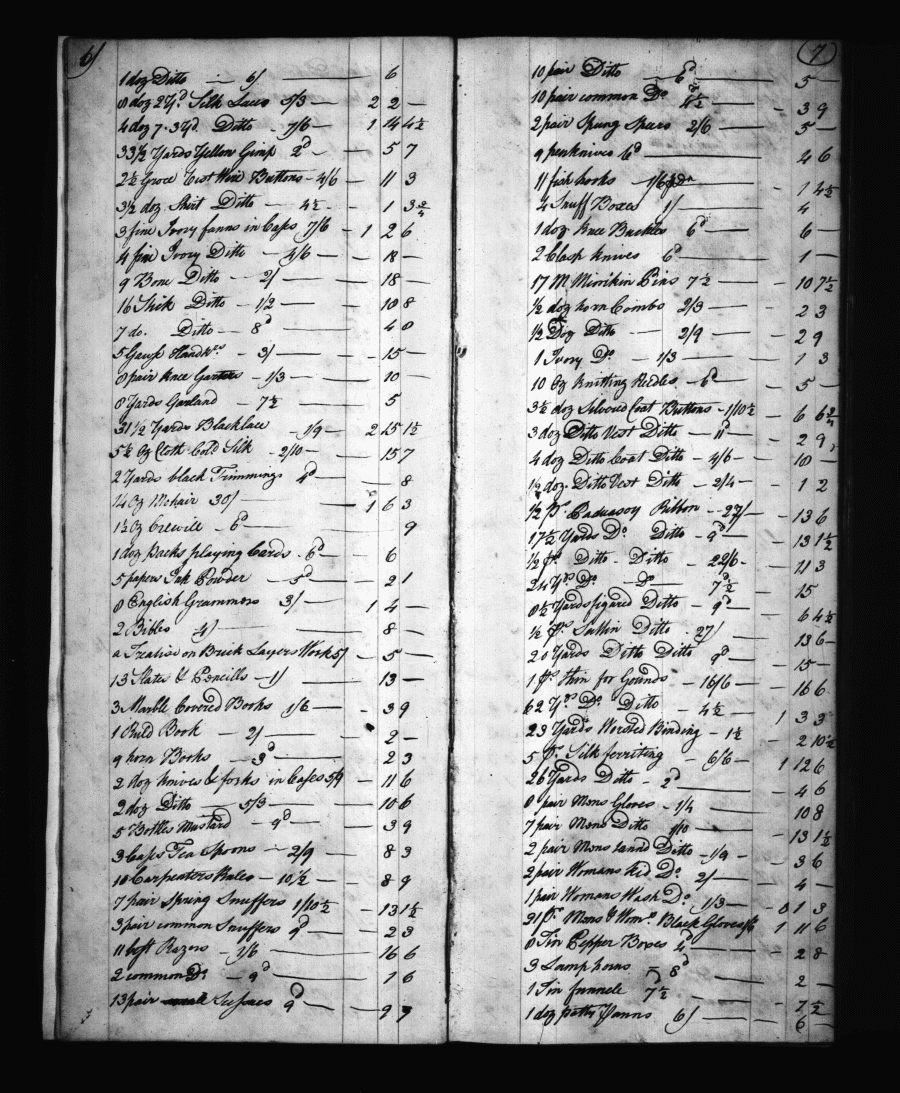 6/
1 doz Ditto — 6/ — 6
8 doz 2 Yd Silk Laces 5/3 — 2 2 —
4 doz 7. 3 Yd. Ditto - 7/6 — 1 14 4½
33½ Yards Yellow Gimp 2d - — 5 7
2½ Groce Vest Wire Buttons - 4/6 — 11 3
3½ doz Shirt Ditto — 4½ — 1 3¾
3 fine Ivory fanns in Cases 7/6 — 1 2 6
4 fine Ivory Ditto — 4/6 — 18 —
9 Bone Ditto — 2/ — 18 —
16 Stick Ditto — 1/2 — 18 8
7 do. Ditto — 8d — 4 8
5 Gause Handkfs — 3/ — 15 —
8 pair Knee Garters — 1/3 — 10 —
8 Yards Garland — 7½ — 5
31½ Yards Blacklace — 1/9 — 2 15 1½
5½ Oz Cloth Cold Silk — 2/10 — 15 7
2 Yards black Trimmings 4d — 8
14 Oz Mohair 30/ — 1 6 3
1½ Oz Crewile — 6d — 9
1 doz Packs playing Cards - 6d — 6
5 papers Ink Powder — 5d — 2 1
8 English Grammers 3/ — 1 4 —
2 Bibles 4/ — 8 —
a Treatise on Brick Layers Work 5/ — 5 —
13 Slates & Pencills — 1/ — 13 —
3 Marble Covered Books 1/6 — 3 9
1 Ruld Book — 2/ — 2 -
9 horn Books — 3d — 2 3
2 doz Knives & forks in Cases 5/9 — 11 6
2 doz Ditto — 5/3 — 10 6
5 Bottles Mustard — 9d — 3 9
3 Cases Tea Spoons — 2/9 — 8 3
10 Carpenters Rules — 10½ — 8 9
7 pair Spring Snuffers 1/10½ — 13 1½
3 pair common Snuffers 9d — 2 3
11 best Razors — 1/6 — 16 6
2 common Do — 9d — 1 6
13 pair Scissars 9d — 9 9
7
10 pair Ditto — 6d — 5 —
10 pair common Do 4½d — 3 9
2 pair Spring Spurs 2/6 — 5 —
9 penknives 6d — 4 6
11 fish hooks — 1 4½
4 Snuff Boxes 1/ — 4
1 doz Knee Buckles 6d — 6 —
2 Clasp Knives 6d — 1 —
17 M Minikin Pins 7½ — 10 7½
½ doz horn Combs 2/3 — 2 3
½ Doz Ditto — 2/9 — 2 9
1 Ivory Do — 1/3 — 1 3
10 Oz Knitting Nedles — 6d — 5 —
3½ doz Silvered Coat Buttons - 1/10½ — 6 6¾
3 doz Ditto Vest Ditto — 11d — 2 9
4 doz Ditto Coat Ditto — 4/6 — 18 —
½ doz Ditto Vest Ditto — 2/4 — 1 2
½ Ps. Paduasoy Ribbon — 27/ — 13 6
17½ Yards Do Ditto — 9d — 13 1½
½ Ps. Ditto Ditto 22/6 - 11 3
24 Yds Do Do 7½d — 15
8½ Yards figared Ditto — 9d — 6 4½
½ Ps. Sattin Ditto 27/ — 13 6
20 Yards Ditto Ditto 9d — 15 —
1 Ps thin for Gounds — 16/6 — 16 6
62 Yds Do Ditto — 4½ — 1 3 3
23 Yards Worsted Binding - 1½ — 2 10½
5 Ps. Silk ferriting — 6/6 — 1 12 6
26 Yards Ditto - 2d — 4 6
8 pair Mens Gloves - 1/4 — 10 8
7 pair Mens Ditto 1/10 — 13 1½
2 pair Mens tannd Ditto — 1/9 — 3 6
2 pair Womans Kid Do 2/ — 4 —
1 pair Womans Wash Do 1/3 — 0 1 3
21 Ps. Mens & Woms Black Gloves 1/6 1 11 6
8 Tin Pepper Boxes 4d — 2 8
3 Lamphorns 8d — 2 —
1 Tin funnele 7½ — 7½
1 doz patty Panns 6/ — 6 —